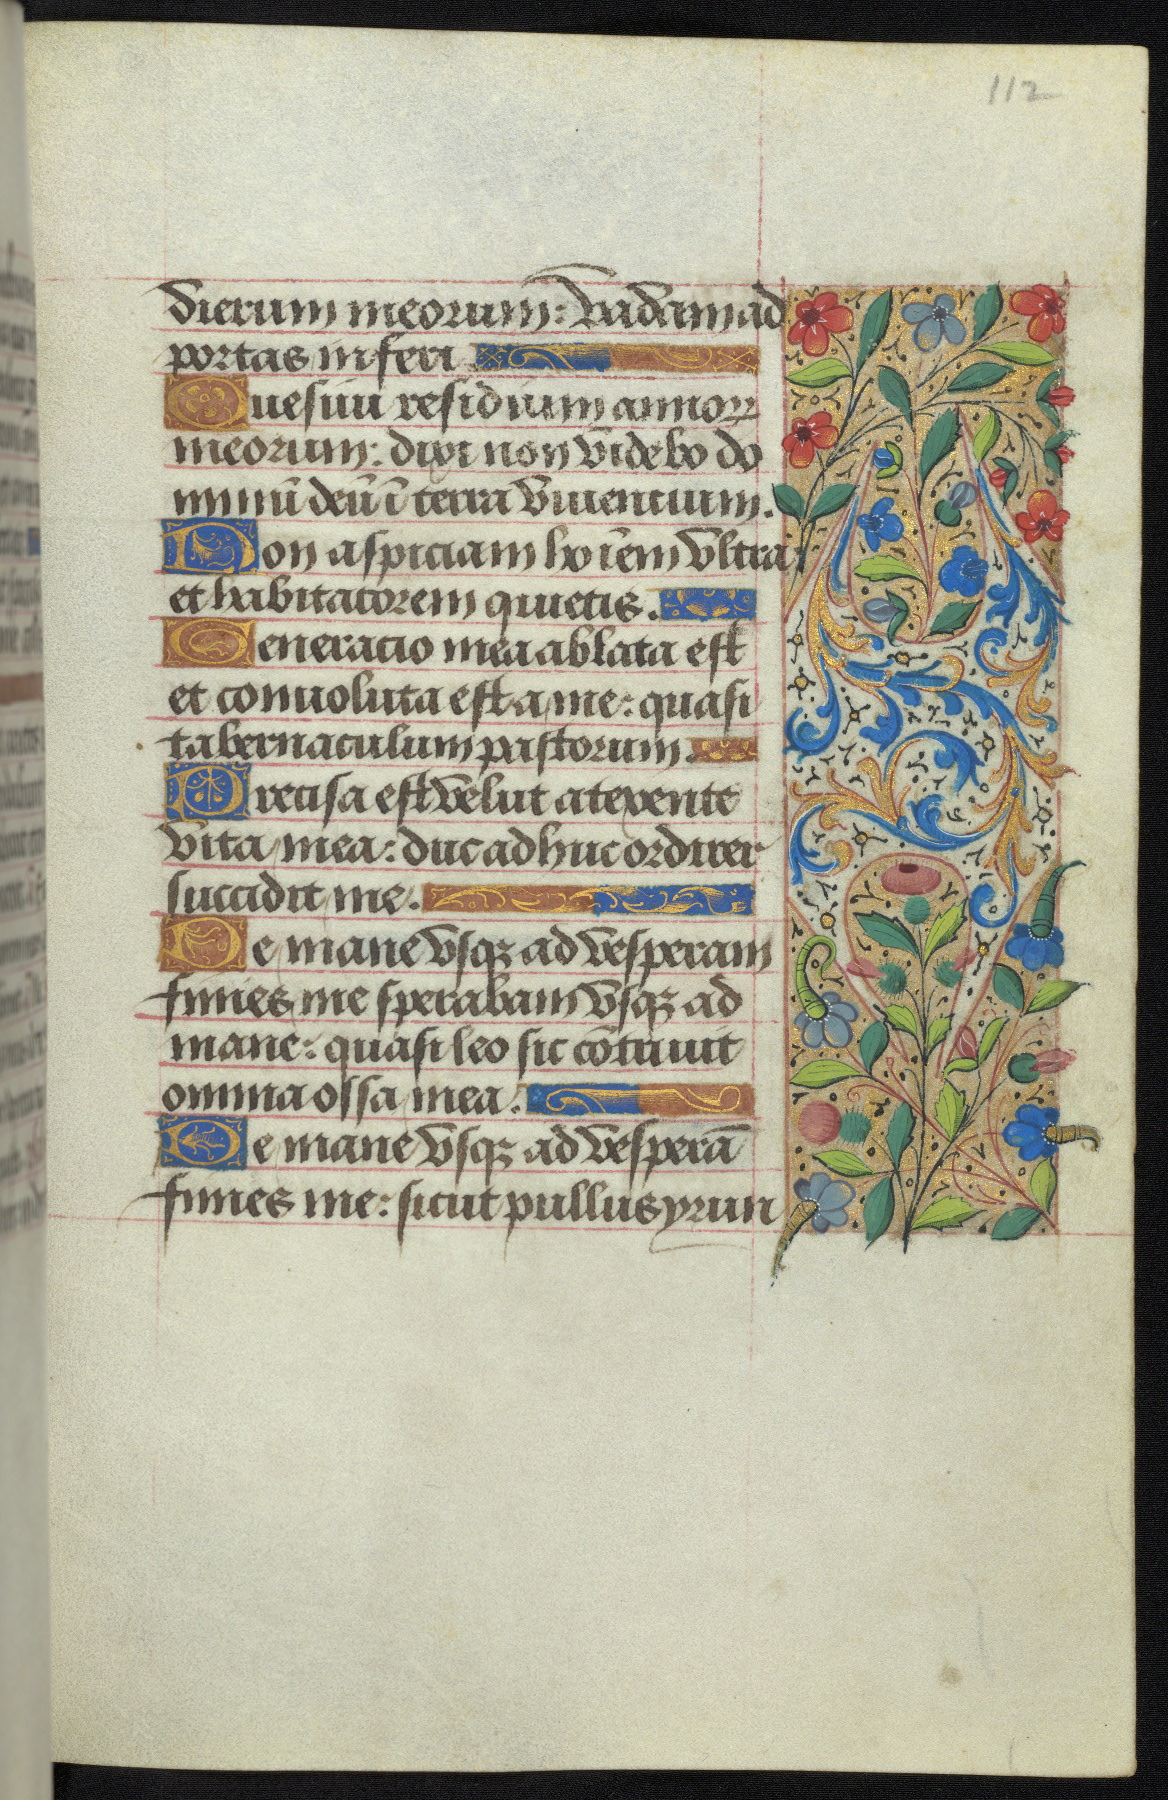 112
dierum meorum: vadam ad
portas inferi.
Quesiui residuum annoꝝ
meorum: dixi non videbo do
minū deū ī terra viuentium.
Non aspiciam hoīem vltra
et habitatorem quietis.
Generacio mea ablata est
et conuoluta est a me: quasi
tabernaculum pastorum.
Precisa est velut a texente
vita mea: dum adhuc ordirer
succidit me.
De mane vsqꝫ ad vesperam
finies me sperabam vsqꝫ ad
mane: quasi leo sic cōtriuit
omnia ossa mea.
De mane vsqꝫ ad vesperā
finies me: sicut pullus yrun